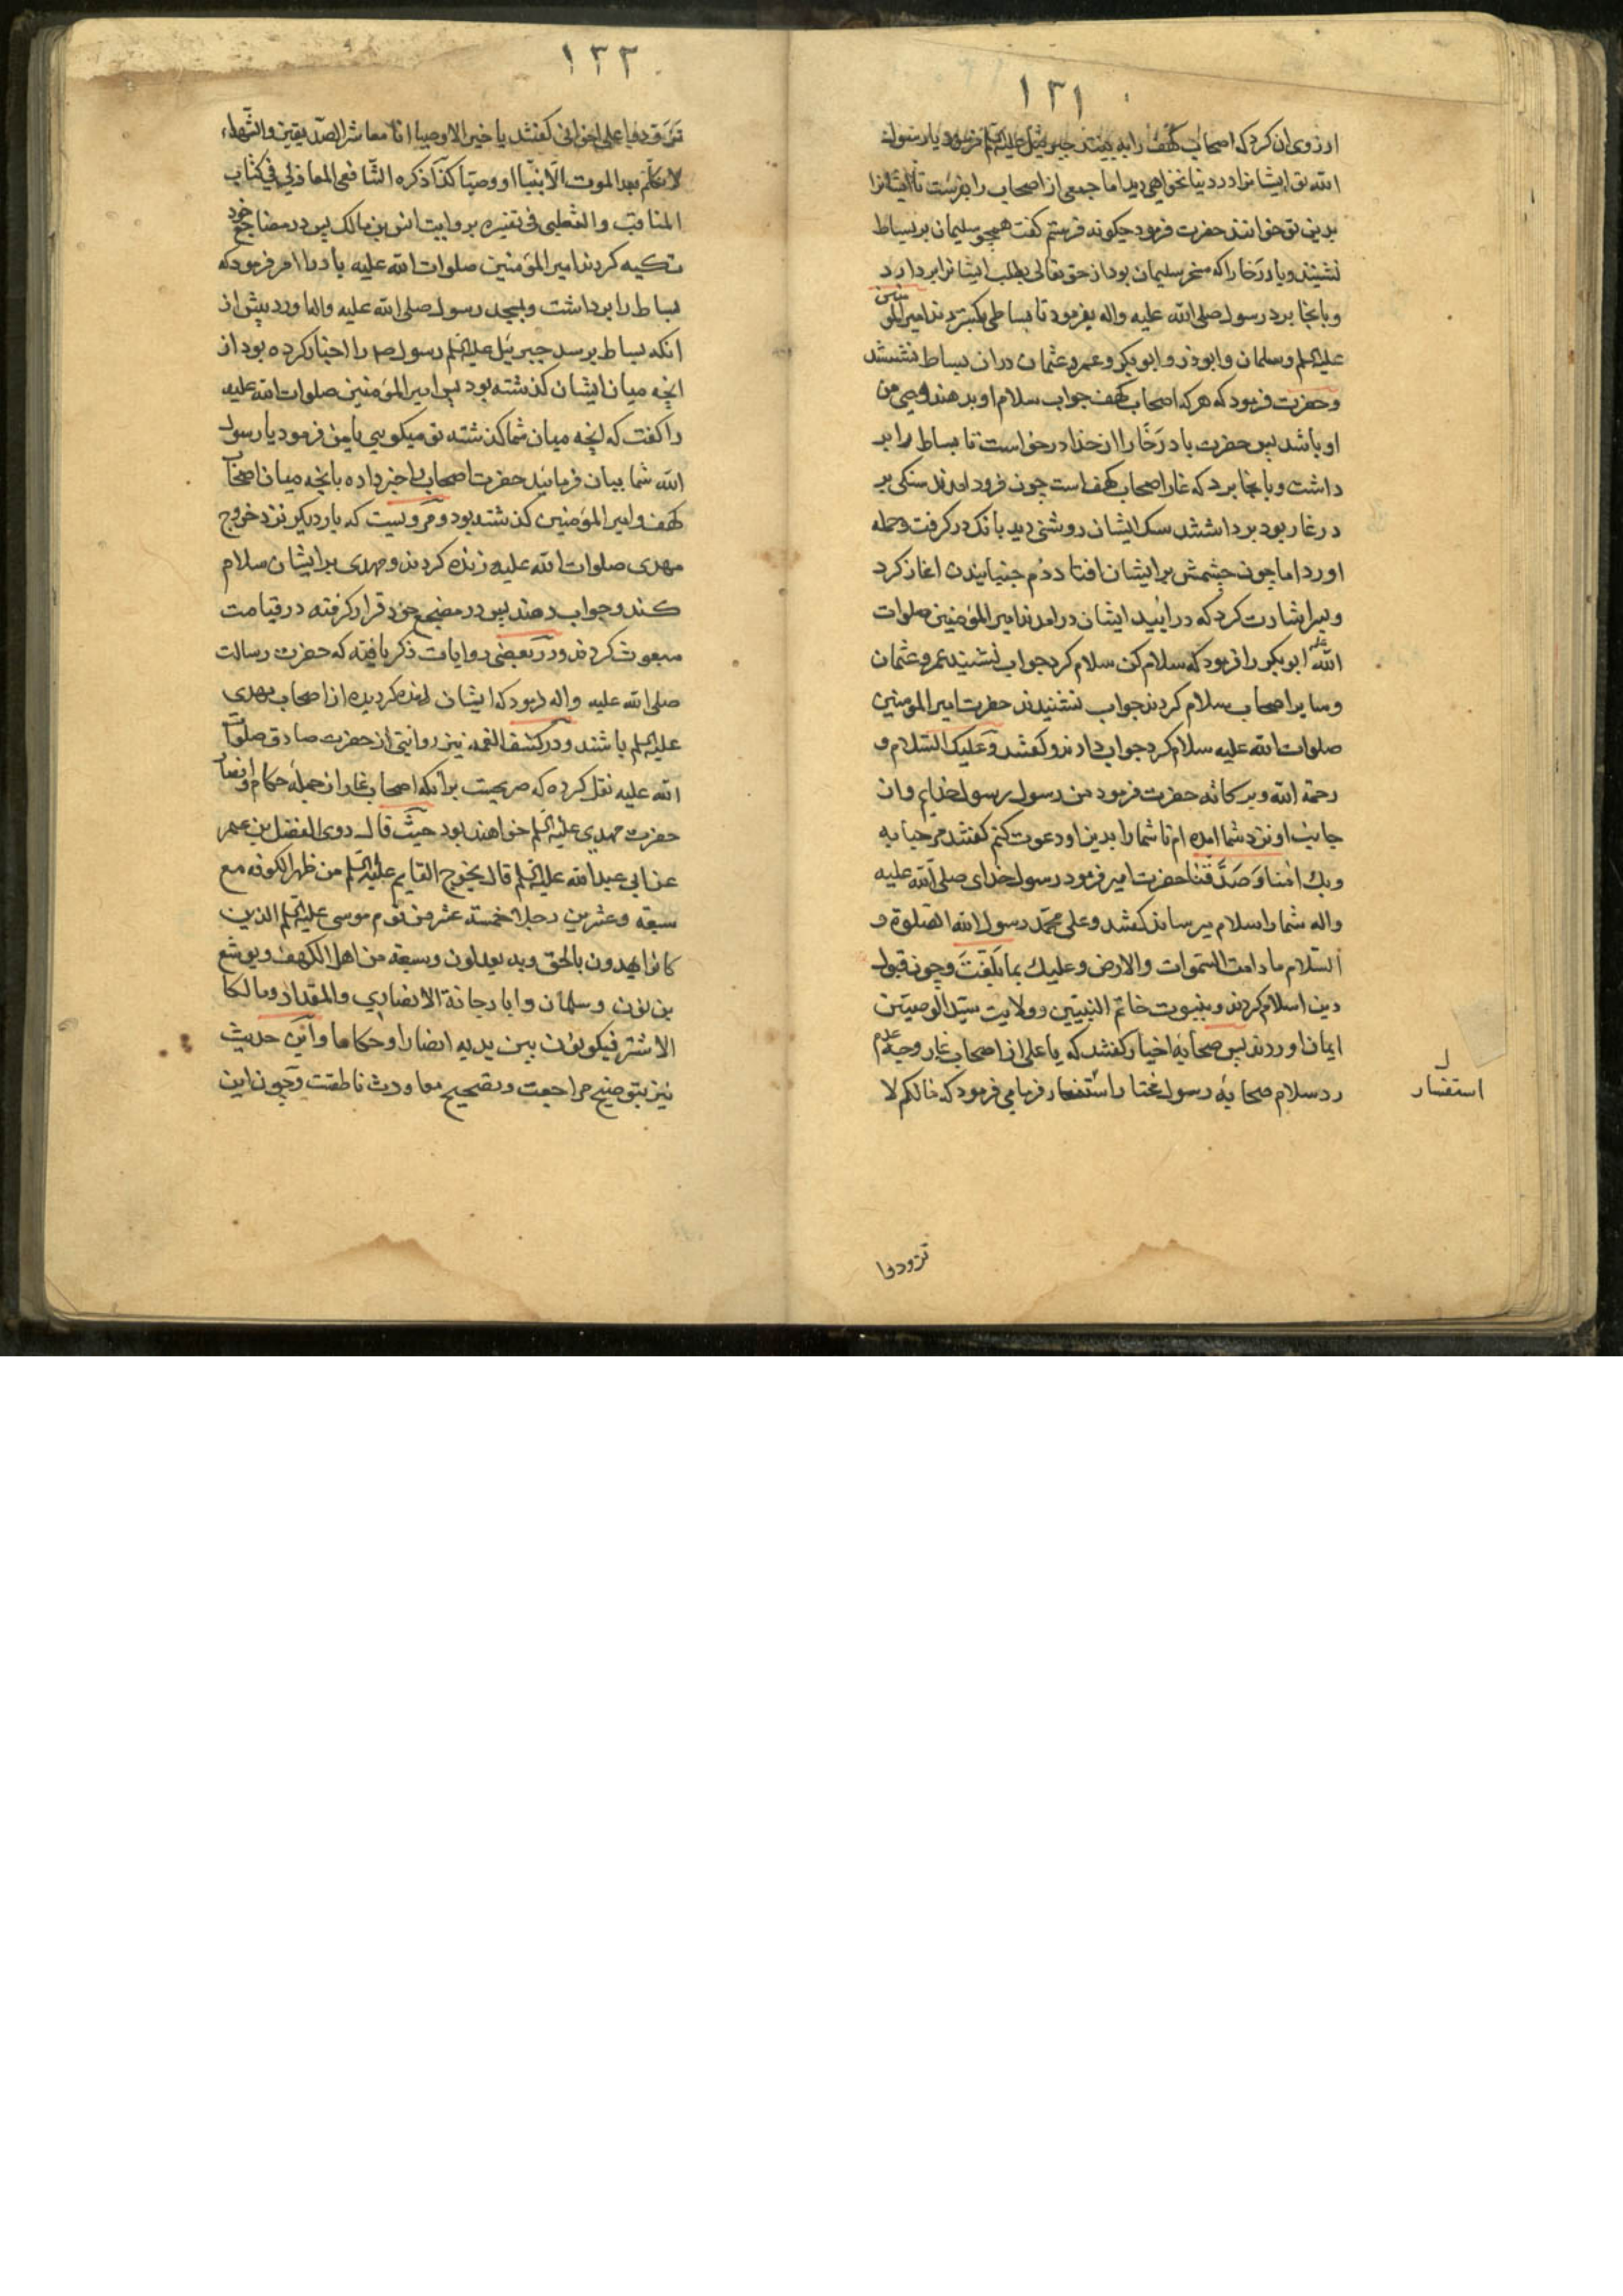 ۱۳۱
ارزوی ان کرد که اصحاب کهف را به بیند جبرئیل علیه السلم فرمود یا رسول
الله تو ایشانرا در دنیا نخواهی دید اما جمعی از اصحاب را بفرست تا ایشانرا
بدین تو خوانند حضرت فرمود چکونه فرستم کفت همچو سلیمان بر بساط
نشینند و باد رخا را که مسخر سلیمان بود از حق تعالی بطلب ایشانرا بردارد
و بانجا برد رسول صلی الله علیه واله بفرمود تا بساطی بکستردند امیر المؤمنین
علیه السلم و سلمان و ابوذر و ابوبکر و عمر و عثمان دران بساط نشستند
و حضرت فرمود که هر که اصحاب کهف جواب سلام او بدهند وصی من
او باشد پس حضرت باد رخا را از خدا درخواست تا بساط را بر
داشت و بانجا برد که غار اصحاب کهف است چون فرود امدند سنکی بر
در غار بود برداشتند سک ایشان روشنی دید بانک در کرفت و حمله
اورد اما چون چشمش بر ایشان افتاد دم جنبانیدن اغاز کرد
و بسر اشارت کرد که درائید ایشان درامدند امیر المؤمنین صلوات
الله علیه ابوبکر را فرمود که سلام کن سلام کرد جواب نشنید عمر و عثمان
و سایر اصحاب سلام کردند جواب نشنیدند حضرت امیر المؤمنین
صلوات الله علیه سلام کرد جواب دادند و کفتند و علیک السلام و
رحمة الله و برکاته حضرت فرمود من رسول رسول خدایم و از
جانب او نزد شما امده ام تا شما را بدین او دعوت کنم کفتند مرحبا به
وبك امنا وصدقنا حضرت امیر فرمود رسول خدای صلی الله علیه
واله شما را سلام میرساند کفتند وعلی محمد رسول الله الصلوة و
السلام ما دامت السموات والارض وعلیك بما بلغت و چون قبول
دین اسلام کردند و بنبوت خاتم النبیین و ولایت سید الوصیین
ایمان اوردند پس صحابهٔ اخیار کفتند که یا علی از اصحاب غار وجه عدم
رد سلام صحابهٔ رسول مختار را استفسار فرمای فرمود که ما لکم لا
استفسار
تردوا
۱۳۲
تردوا علی اخوانی کفتند یا خیر الاوصیا انا معاشر الصدیقین والشهداء
لا نکلم بعد الموت الا نبیا او وصیا کذا ذکره الشافعی المغازلی فی کتاب
المناقب والثعلبی فی تفسیره بروایت انس بن مالک پس در مضاجع خود
تکیه کردند امیر المؤمنین صلوات الله علیه باد را امر فرمود که
بساط را برداشت و بمسجد رسول صلی الله علیه واله اورد پیش از
انکه بساط برسد جبرئیل علیه السلم رسول را اخبار کرده بود از
انچه میان ایشان کذشته بود پس امیر المؤمنین صلوات الله علیه
را کفت که انچه میان شما کذشته تو میکویی یا من فرمود یا رسول
الله شما بیان فرمائید حضرت اصحاب را خبر داده بانچه میان اصحاب
کهف و امیر المؤمنین کذشته بود و مرویست که بار دیکر نزد خروج
مهدی صلوات الله علیه زنده کردند و مهدی بر ایشان سلام
کند و جواب دهند پس در مضجع خود قرار کرفته در قیامت
مبعوث کردند و در بعضی روایات ذکر یافته که حضرت رسالت
صلی الله علیه واله فرمود که ایشان زنده کردیده از اصحاب مهدی
علیه السلم باشند و در کشف الغمه نیز روایتی از حضرت صادق صلوات
الله علیه نقل کرده که صریحست برانکه اصحاب غار از جمله حکام و انصار
حضرت مهدی علیه السلم خواهند بود حیث قال روی المفضل بن عمر
عن ابی عبدالله علیه السلم قال یخرج القایم علیه السلم من ظهر الکوفه مع
سبعة وعشرین رجلا خمسة عشر من قوم موسی علیه السلم الذین
کانوا یهدون بالحق وبه یعدلون وسبعة من اهل الکهف ویوشع
بن نون وسلمان وابا دجانة الانصاری والمقداد ومالکا
الاشتر فیکونون بین یدیه انصارا وحکاما و این حدیث
نیز بتوضیح مراجعت و تصحیح معاودت ناطقست و چون این